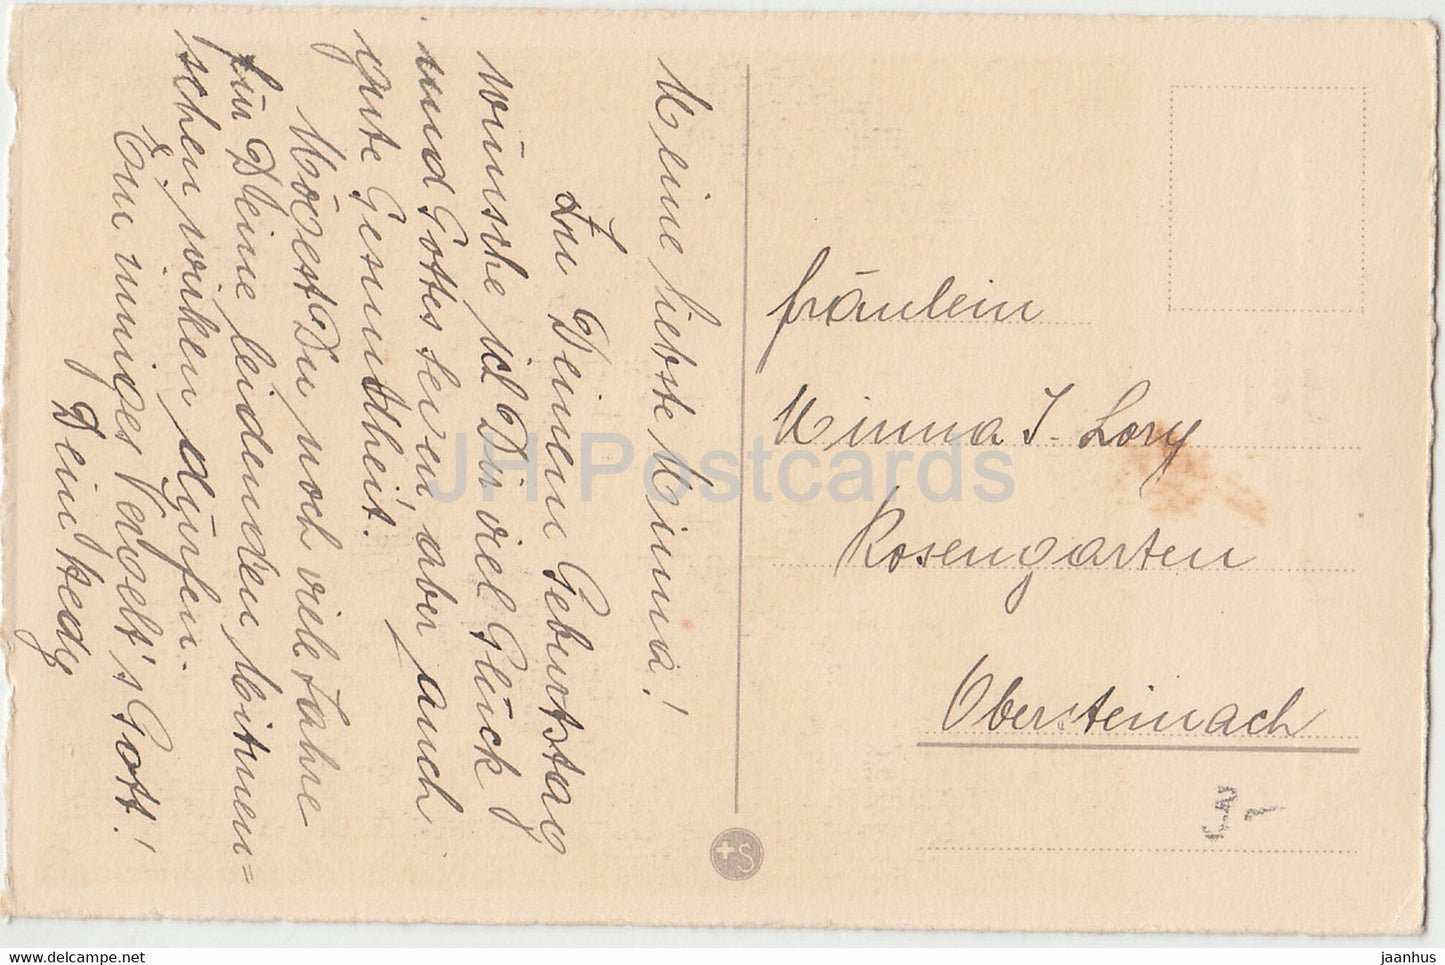 Meine liebste Minna!
Zu Deinem Geburtstag
wünsche ich Dir viel Glück
und Gottes Segen, aber auch
gute Gesundheit.
Mögest Du noch viele Jahre
für Deine leidenden Mitmen=
schen wirken dürfen.
Ein inniges Vergelt's Gott!
Dein Hedy
Fräulein
Minna J. Lory
Rosengarten
Obersteinach
+S
JH Postcards
jaanhus